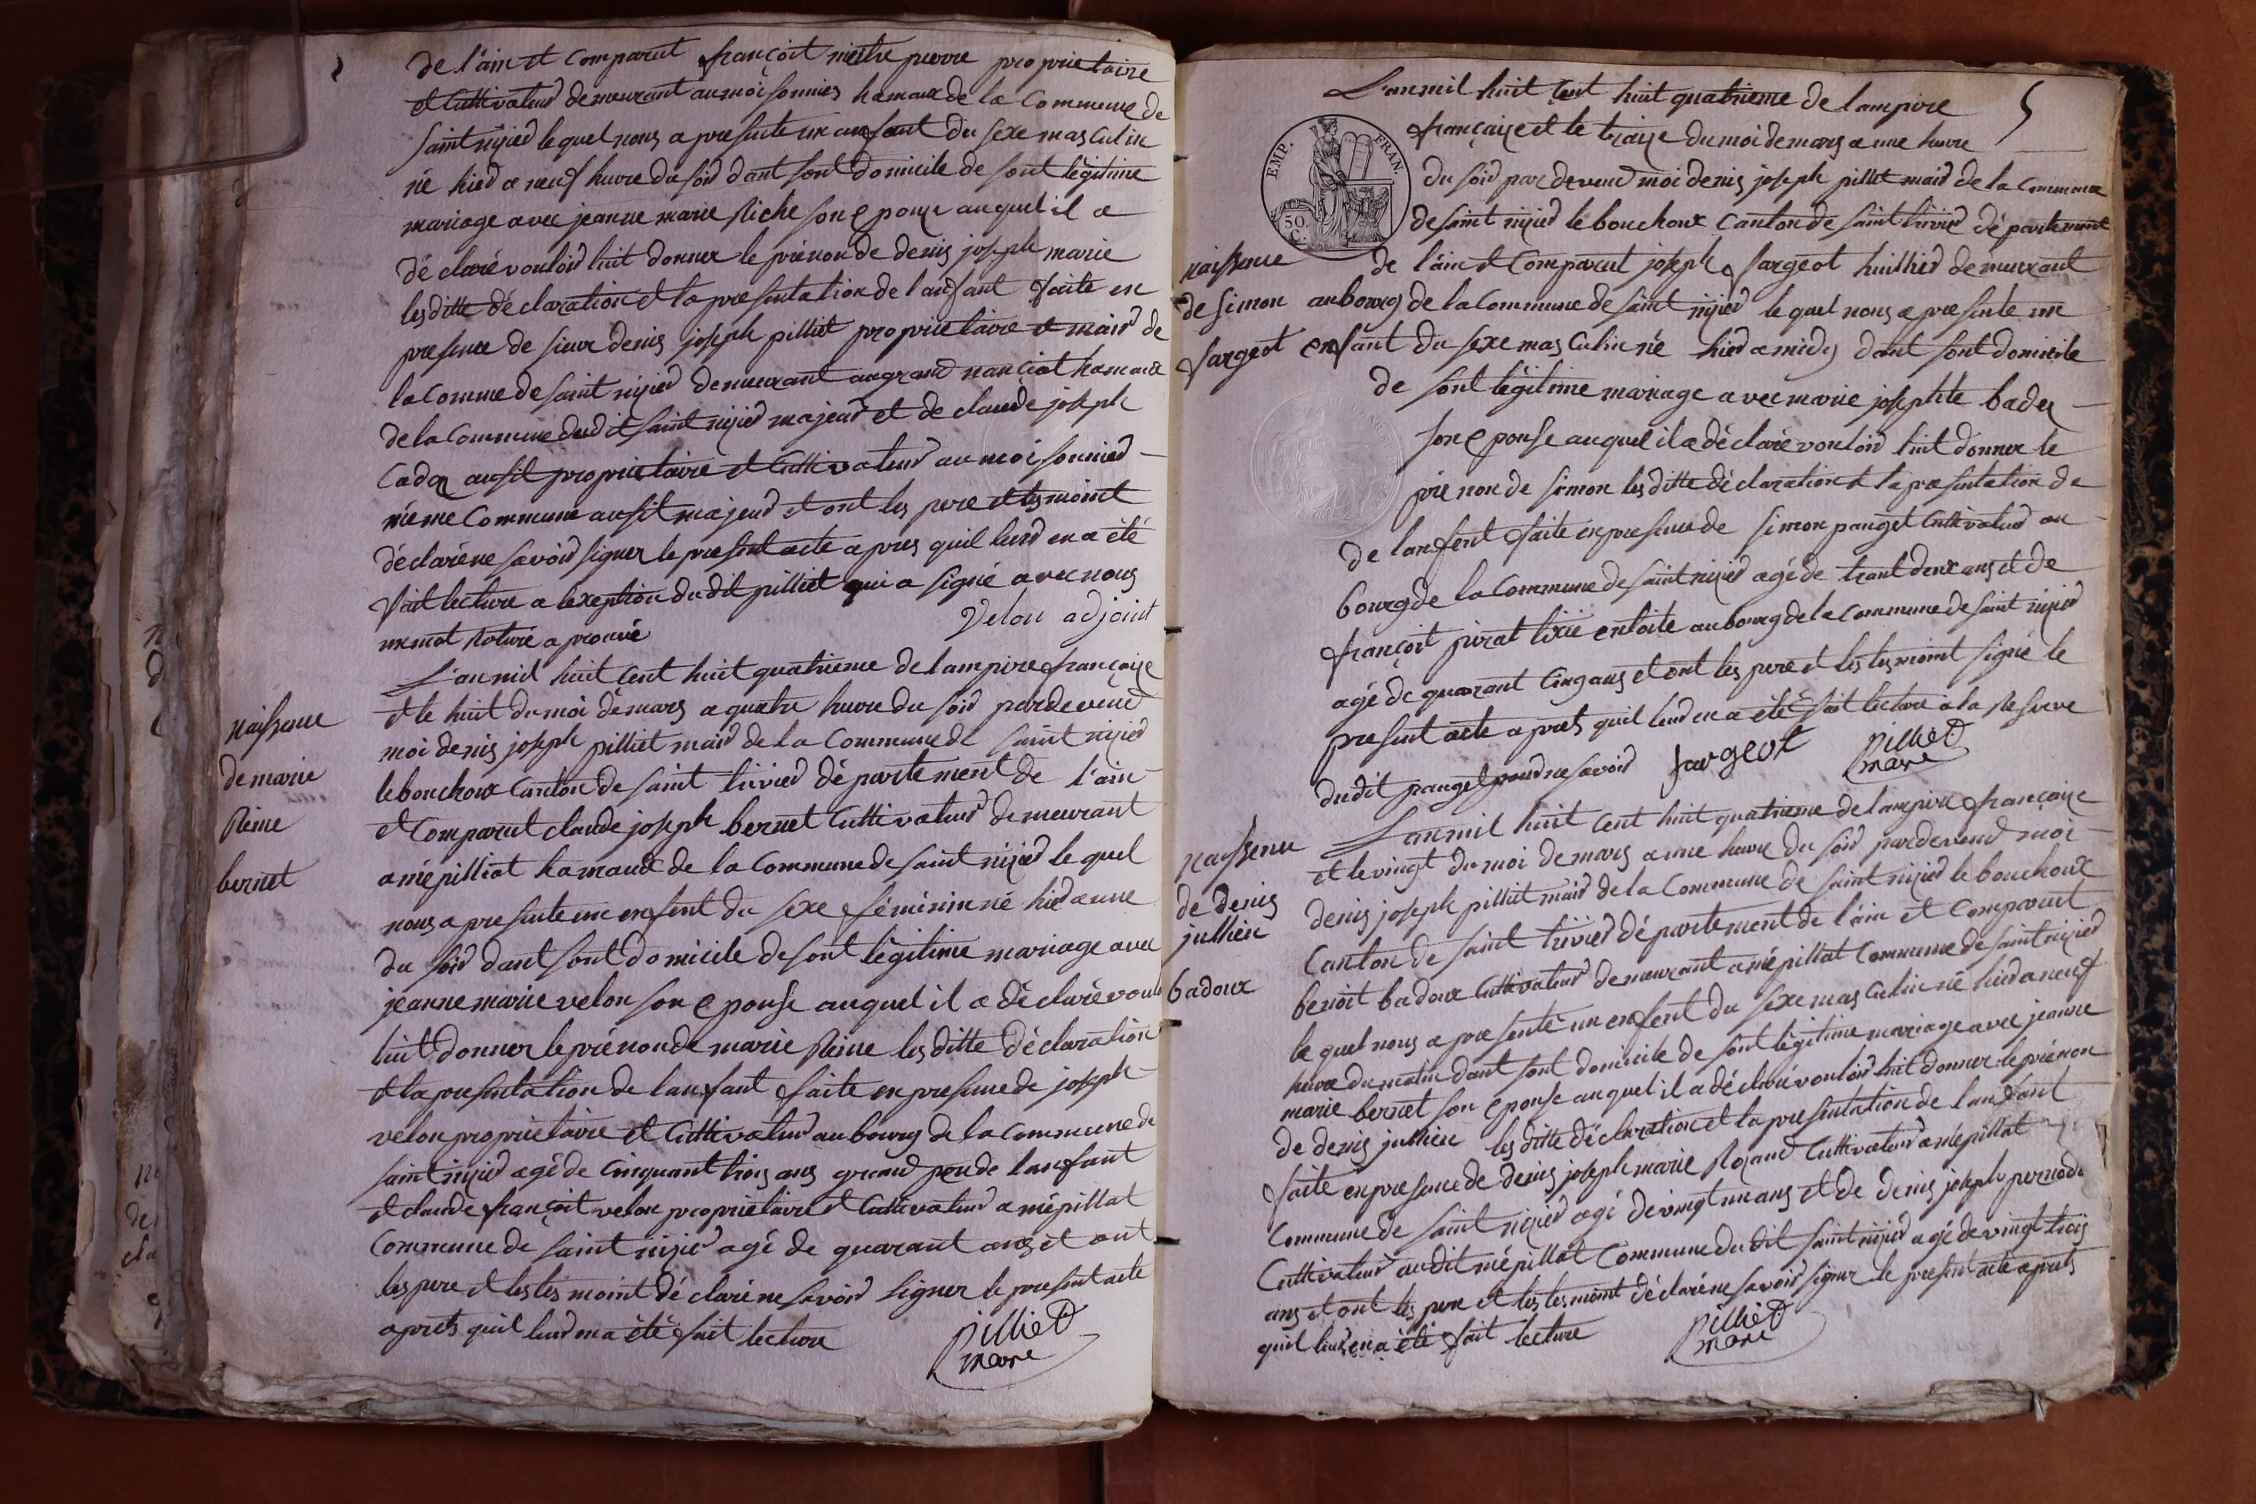 de l'ain et comparut françoit nieltre pierre propriettaire
et Cultivateur demeurant au moisonnies hamaux de la Commune de
saint nizied lequel nous a presente un anfant du sexe masculin
né hied a neuf huvre du soid dant sont domicile de sont légitime
mariage avec jeanne marie Riche son epouze auquel il a
déclaré vouloid luit donner le prénon de denis joseph marie
les ditte déclaration et la presentation de l'anfant faite en
presence de sieur denis joseph pilliet propriettaire et maird de
la Comme de saint nizied demeurant au grand nanciat hamaux
de la Commune dudit saint nizied majeur et de claude joseph
Cadoz ausit propriettaire et Cultivateur au moisonnied
même Commune ausit majeud et ont les pere et tesmoint
déclaré ne savoid signer le present acte apres quil leurd en a été
fait lecture a l'exeption du dit pilliet qui a signé avec nous
un mot roturé aprouvé Velon adjoint
L'an mil huit Cent huit quatrieme de l'ampire françaize
et le huit du moi de mars a quatre huvre du soid pardevend
moi denis joseph pilliet maird de la Commune de saint nizied
le bouchoux Canton de saint trivied département de l'ain
et Comparut claude joseph bernet Cultivateur demeurant
a mépilliat hamaux de la Commune de saint nizied le quel
nous a presente un enfent du sexe féminin né hied a une
du soid dant sont domicile de sont légitime mariage avec
jeanne marie velon son epouse auquel il a déclaré voul
luit donner le prénon de marie Reine les ditte déclaration
et la presentation de l'anfant faite en presence de joseph
velon propriettaire et Cultivateur au bourg de la Commune de
saint nizied agé de Cinquant trois ans grand peu de l'anfant
et claude françoit velon propriettaire et Cultivateur a mépillat
Commune de saint nizied agé de quarant ans et ont
les pere et les tesmoint déclaré ne savoid signer le present acte
aprets quil leurd en a été fait lecture Pilliet
maire
naissence
de marie
Reine
bernet
5
L'an mil huit Cent huit quatrieme de l'ampire
françaize et le traize du moi de mars a une huvre
du soid par devend moi denis joseph pilliet maird de la Commune
de saint nizied le bouchoux Canton de saint trivied département
EMP. FRAN.
50 C.
de l'ain et Comparut joseph fargeot huillied demeurant
au bourg de la Commune de saint nizied le quel nous a presente un
enfant du sexe masculin né hied a midy dant sont domicile
de sont légitime mariage avec marie josephte badez
son epouse auquel il a déclaré vouloid luit donner le
prénon de simon les ditte déclaration et la presentation de
de l'anfent faite en presence de simon panget Cultivateur au
bourg de la Commune de saint nizied agé de trant deux ans et de
françoit pirat tixie entoile au bourg de la Commune de saint nizied
agé de quarant Cinq ans et ont les pere et les tesmoint signé le
present acte aprets quil leurd en a été fait lecture a la Reserve
dudit panget pour ne savoid fargeot Pilliet
maire
naissence
de simon
fargeot
L'an mil huit Cent huit quatrieme de l'ampire françaize
et le vingt du moi de mars a une huvre du soid pardevend moi
denis joseph pilliet maird de la Commune de saint nizied le bouchoux
Canton de saint trivied département de l'ain et Comparut
benoit badoux Cultivateur demeurant a mépillat Commune de saint nizied
le quel nous a presenté un enfent du sexe masculin né hied a neuf
huvre du matin dant sont domicile de sont légitime mariage avec jeanne
marie bernet son epouse auquel il a déclaré vouloid luit donner le prénon
de denis jullien les ditte déclaration et la presentation de l'anfant
faite en presence de denis joseph marie Rozand Cultivateur a mépillat
Commune de saint nizied agé de vingt un ans et de denis joseph pernodi
Cultivateur audit mépillat Commune du dit saint nizied agé de vingt trois
ans et ont les pere et les tesmoint déclaré ne savoid signer le present acte aprets
quil leurd en a été fait lecture Pilliet
maire
naissence
de denis
jullien
badoux